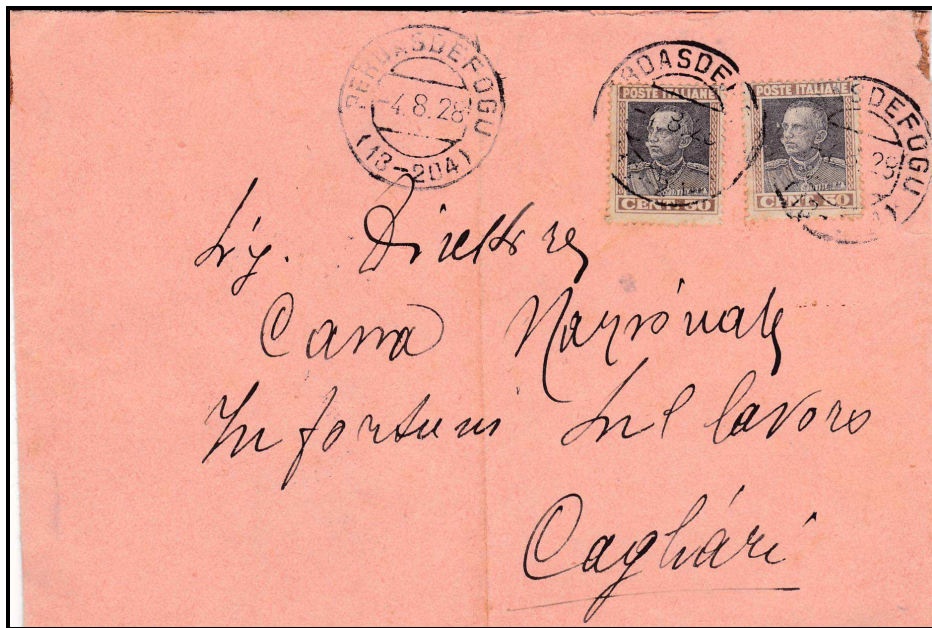 PERDASDEFOGU
4.8.28
(13-204)
RDASDE
SDEFOGU
28
POSTE ITALIANE
CENT. 50
POSTE ITALIANE
CENT. 50
Sig. Direttore
Cassa Nazionale
Infortuni sul lavoro
Cagliari